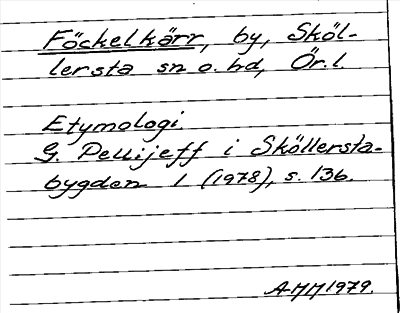 Föckelkärr, by, Sköl-
lersta sn o. hd, Ör. l.
Etymologi.
G. Pellijeff i Sköllersta-
bygden 1 (1978), s. 136.
AMM 1979.